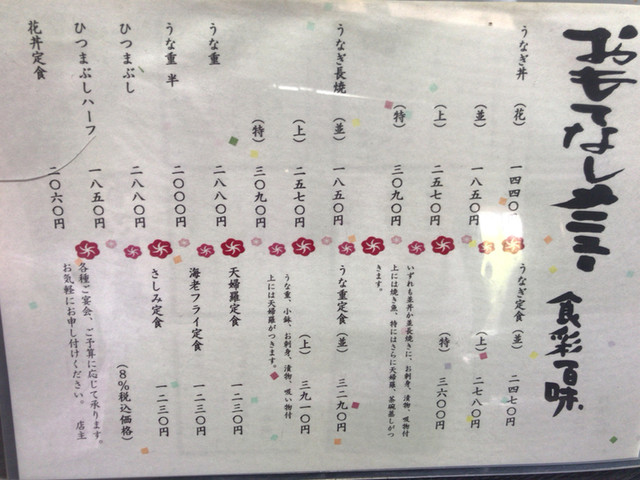 おもてなしメニュー 食彩百味
うなぎ丼 (花) 一四四〇円
(並) 一八五〇円
(上) 二五七〇円
(特) 三〇九〇円
うなぎ長焼 (並) 一八五〇円
(上) 二五七〇円
(特) 三〇九〇円
うな重 二八八〇円
うな重 半 二〇〇〇円
ひつまぶし 二八八〇円
ひつまぶしハーフ 一八五〇円
花丼定食 二〇六〇円
うなぎ定食 (並) 二四七〇円
(上) 二七八〇円
(特) 三六〇〇円
いずれも並丼か並長焼きに、お刺身、漬物、吸物付
上には焼き魚、特にはさらに天婦羅、茶碗蒸しがつ
きます。
うな重定食 (並) 三二九〇円
(上) 三九一〇円
うな重、小鉢、お刺身、漬物、吸い物付
上には天婦羅がつきます。
天婦羅定食 一二三〇円
海老フライ定食 一二三〇円
さしみ定食 一二三〇円
(8%税込価格)
各種ご宴会、ご予算に応じて承ります。
お気軽にお申し付けください。 店主